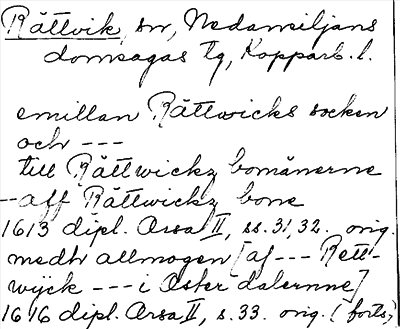 Rättvik, sn, Nedansiljans
domsagas tg, Kopparb. l.
emillan Rättwicks socken
och ---
till Rättwickz bomänerne
-- aff Rättwickz bone
1613 dipl. Arsa II, ss. 31, 32. orig.
medh allmogen [af --- Rett-
wijck --- i Öster dalernne]
1616 dipl. Arsa II, s. 33. orig. (forts.)